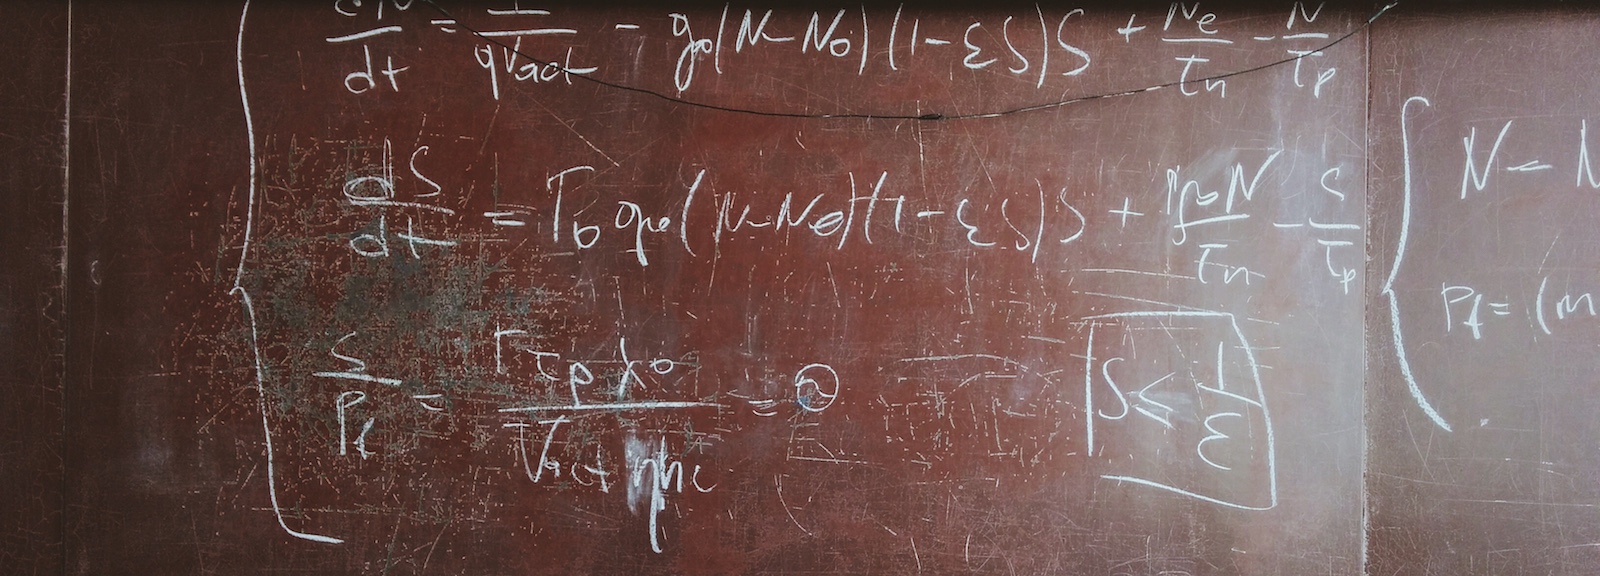 dN/dt = I/qVact - g₀(N-N₀)(1-εS)S + Ne/τn - N/τp
dS/dt = Γ₀g₀(N-N₀)(1-εS)S + ΓβN/τn - S/τp
S/Pf = Γτpλ₀/Vact ηhc = ②
S ≤ 1/ε
N - N
Pf = (m